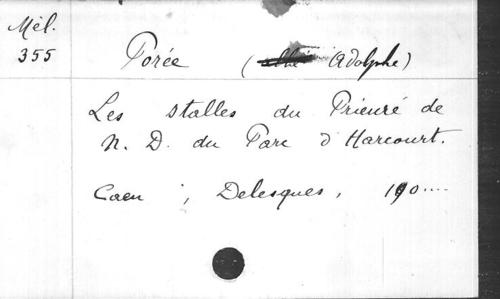 Mél.
355
Porée (abbé Adolphe)
Les stalles du Prieuré de
N. D. du Parc d'Harcourt.
Caen, Delesques, 190....